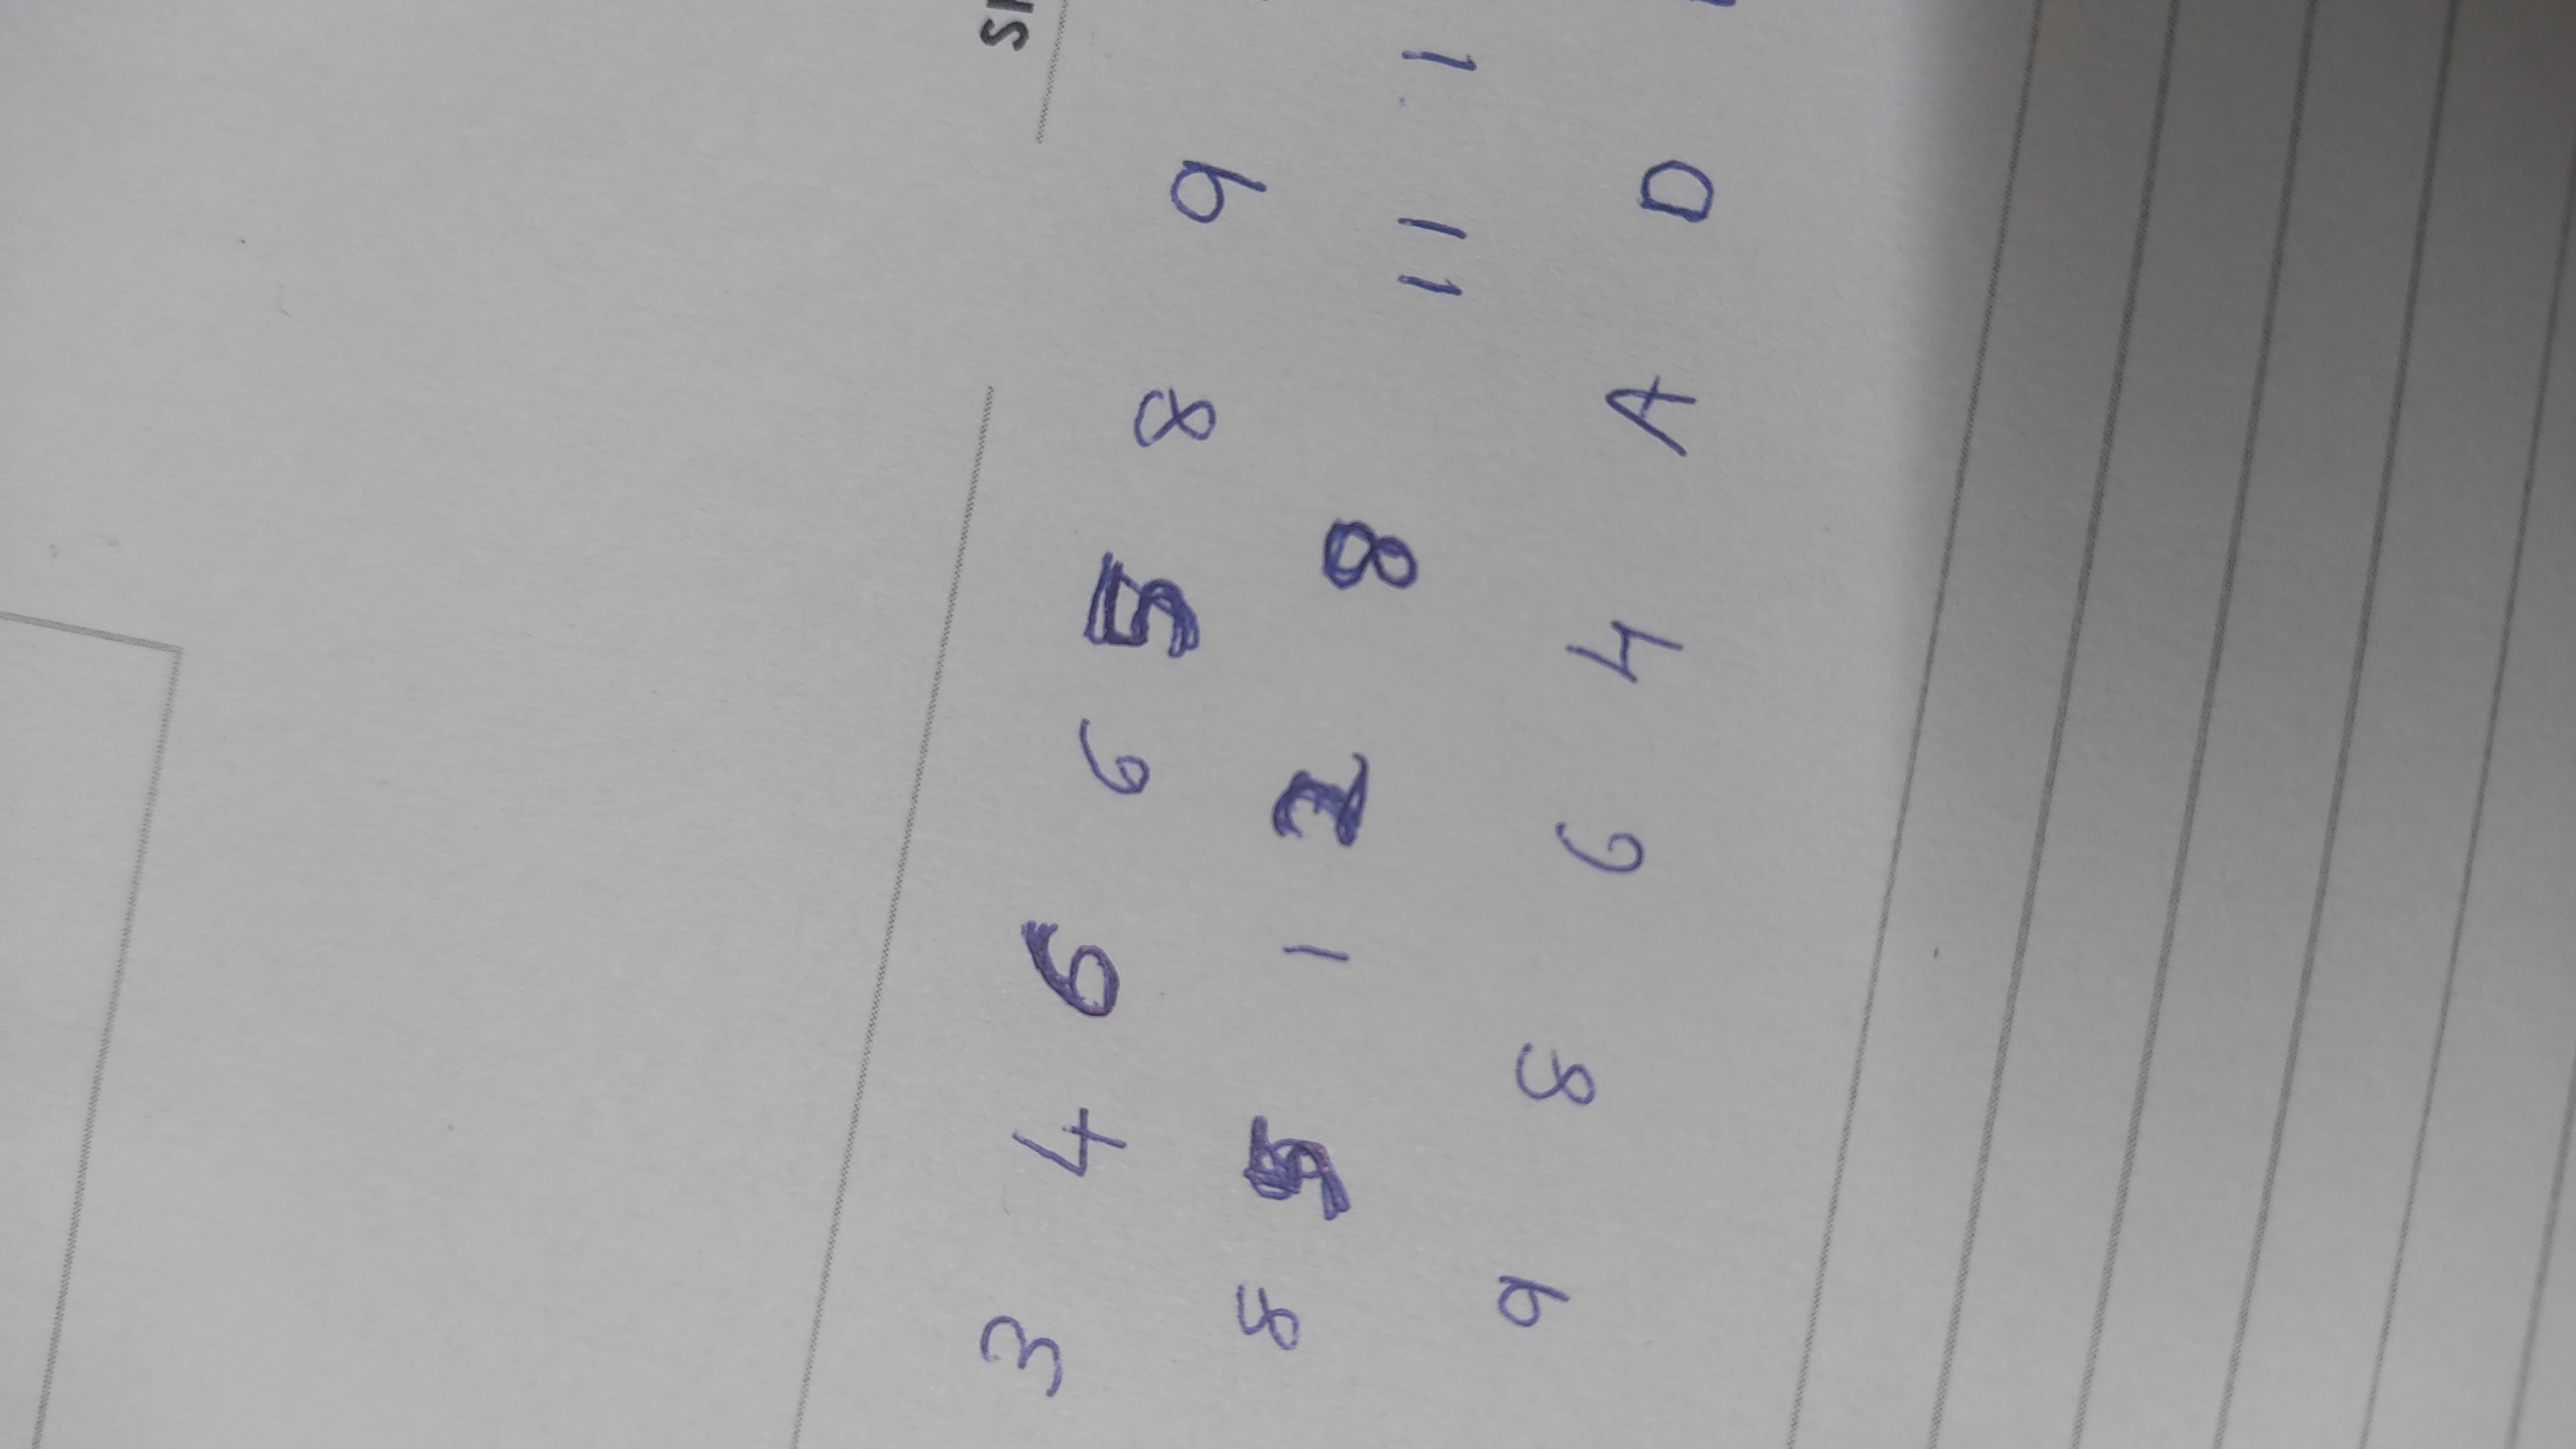 3 4 6 6 5 8 9
8 5 1 2 8 11 1
9 8 6 4 A D